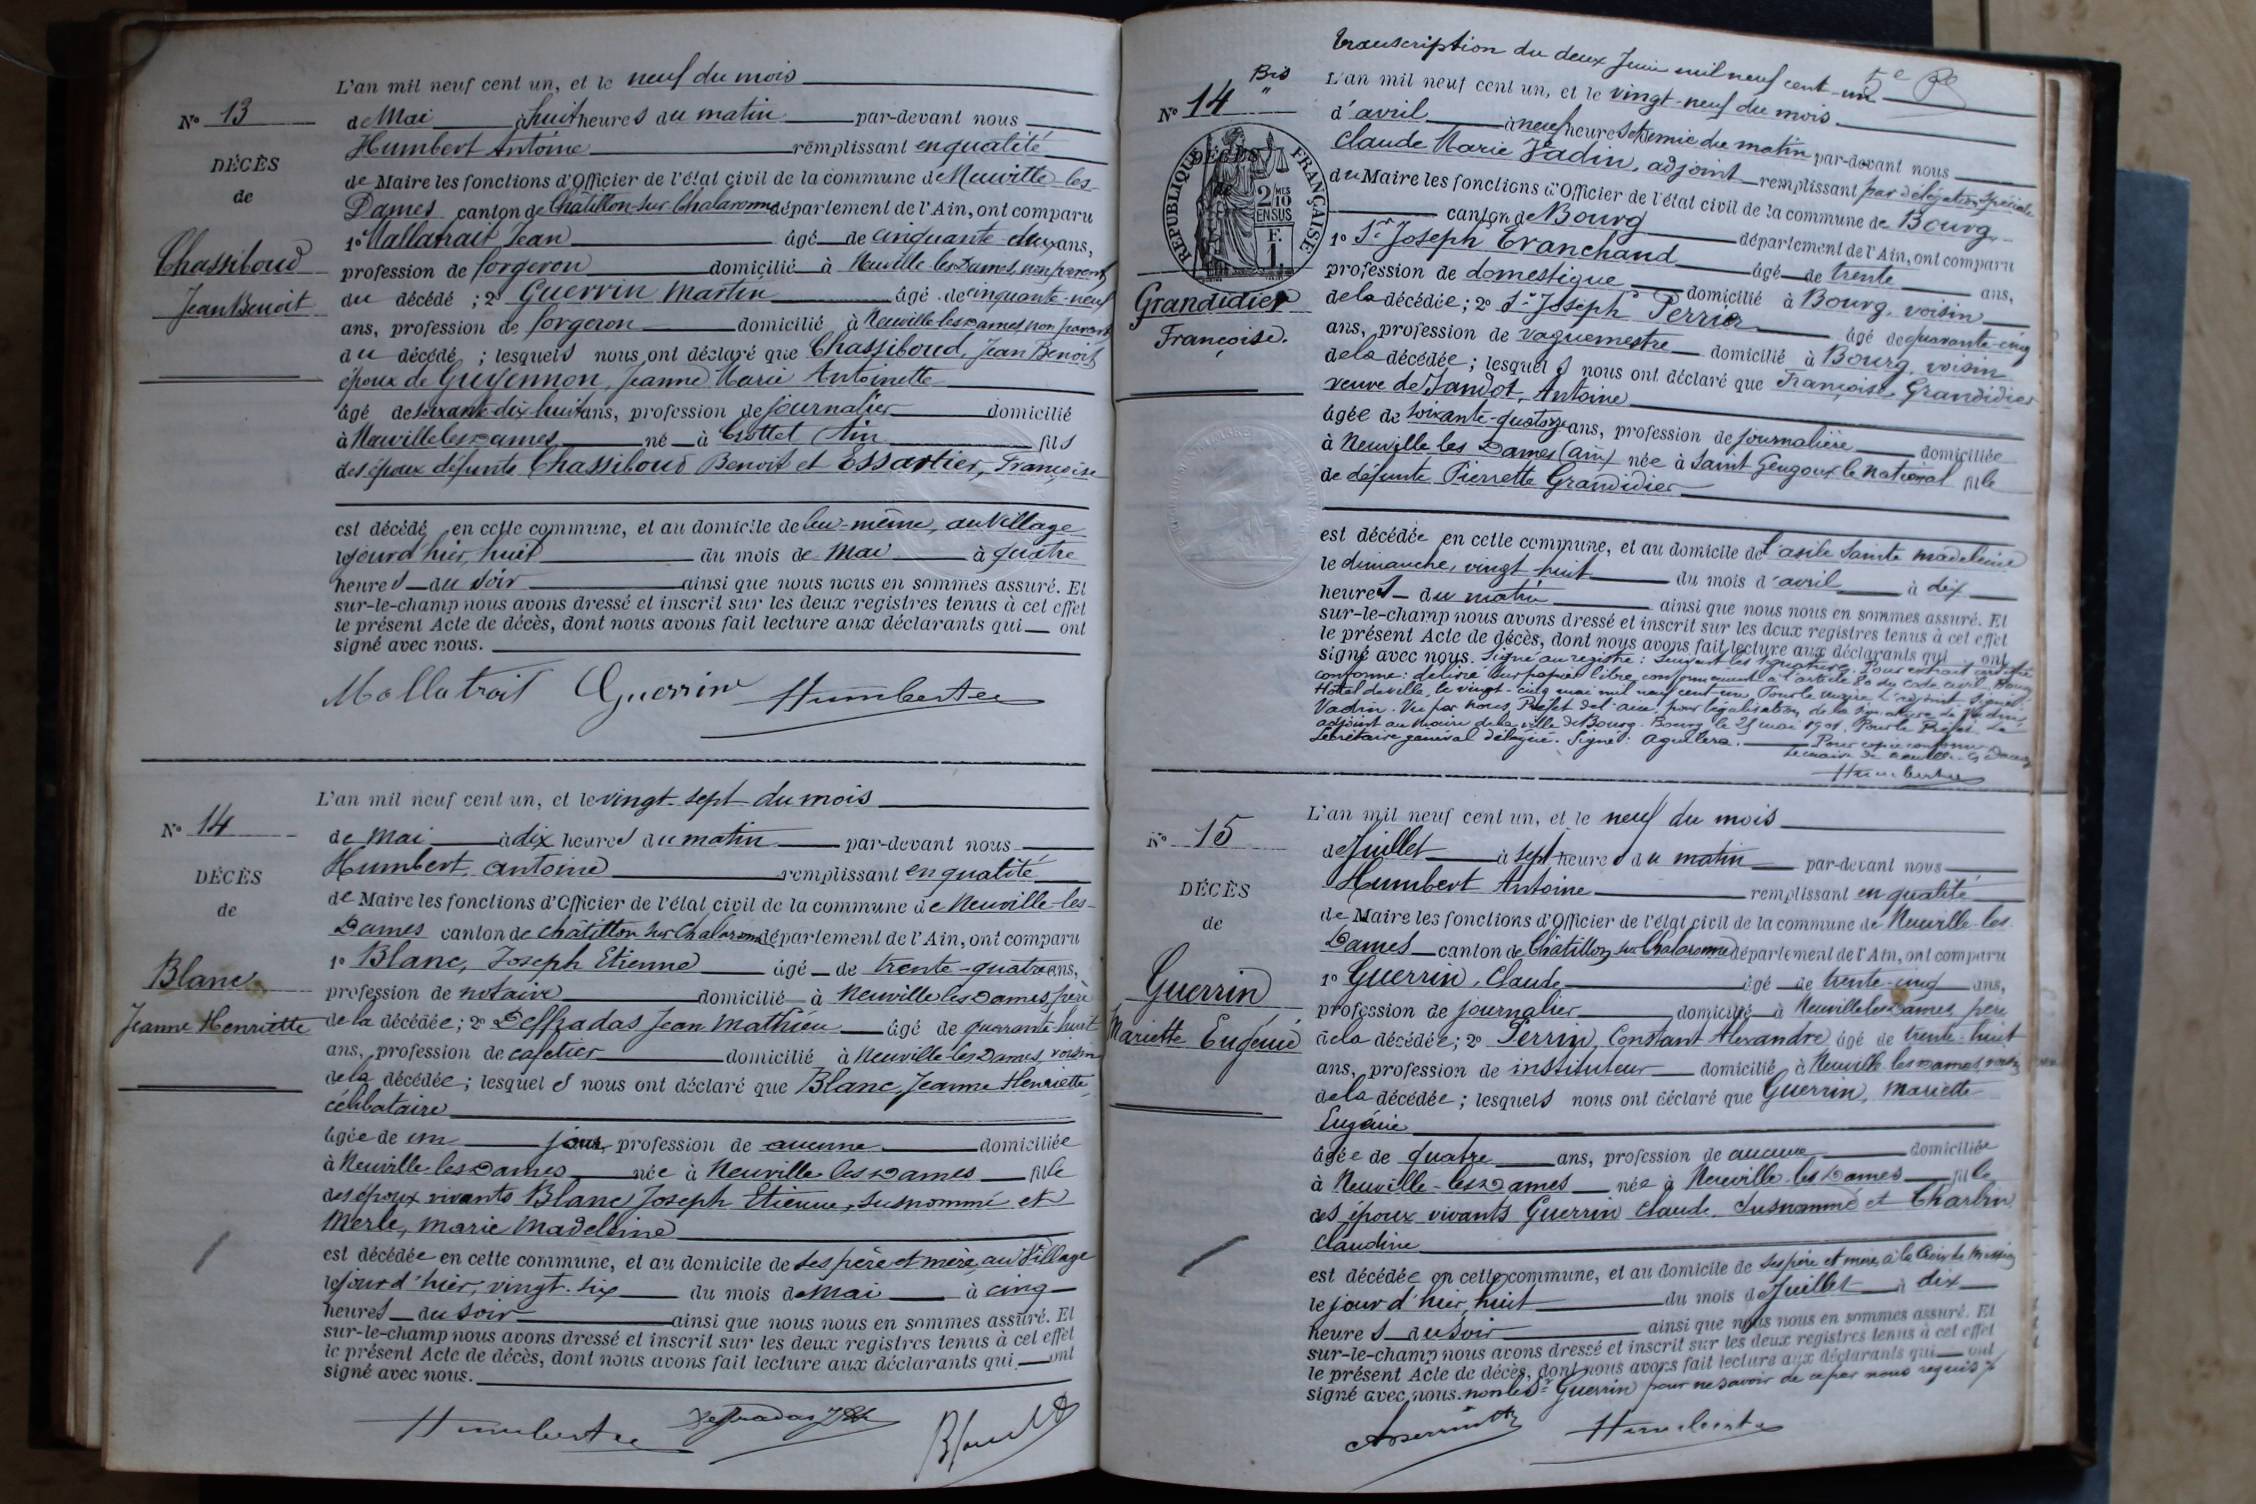 L'an mil neuf cent un, et le neuf du mois
N° 13
de Mai à huit heures du matin par-devant nous
Humbert Antoine remplissant en qualité
DÉCÈS
de Maire les fonctions d'Officier de l'état civil de la commune de Neuville-les-
de
Dames canton de Châtillon-sur-Chalaronne département de l'Ain, ont comparu
1° Mallatrait Jean âgé de cinquante-deux ans,
Chassiboud
profession de forgeron domicilié à Neuville les Dames, non parent
Jean Benoit
du décédé ; 2° Guerrin Martin âgé de cinquante-neuf
ans, profession de forgeron domicilié à Neuville les Dames non parent
du décédé ; lesquels nous ont déclaré que Chassiboud, Jean Benoit
époux de Guyennon, Jeanne Marie Antoinette
âgé de soixante-dix huit ans, profession de journalier domicilié
à Neuville les Dames né à Crottet Ain fils
des époux défunts Chassiboud Benoit et Essartier, Françoise
est décédé en cette commune, et au domicile de lui-même, au Village
le jour d'hier, huit du mois de Mai à quatre
heures du soir ainsi que nous nous en sommes assuré. Et
sur-le-champ nous avons dressé et inscrit sur les deux registres tenus à cet effet
le présent Acte de décès, dont nous avons fait lecture aux déclarants qui ont
signé avec nous.
Mallatrait Guerrin Humbert
L'an mil neuf cent un, et le vingt-sept du mois
N° 14
de Mai à dix heures du matin par-devant nous
Humbert, Antoine remplissant en qualité
DÉCÈS
de Maire les fonctions d'Officier de l'état civil de la commune de Neuville-les-
de
Dames canton de Châtillon sur Chalaronne département de l'Ain, ont comparu
1° Blanc, Joseph Etienne âgé de trente-quatre ans,
Blanc
profession de notaire domicilié à Neuville les Dames, père
Jeanne Henriette
de la décédée ; 2° Deffradas Jean Mathieu âgé de quarante-huit
ans, profession de cafetier domicilié à Neuville-les-Dames, voisin
de la décédée ; lesquels nous ont déclaré que Blanc, Jeanne Henriette
célibataire
âgée de un jour, profession de aucune domiciliée
à Neuville les Dames née à Neuville les Dames fille
des époux vivants Blanc Joseph Etienne, susnommé et
Merle, Marie Madeleine
est décédée en cette commune, et au domicile de ses père et mère, au Village
le jour d'hier, vingt-six du mois de Mai à cinq
heures du soir ainsi que nous nous en sommes assuré. Et
sur-le-champ nous avons dressé et inscrit sur les deux registres tenus à cet effet
le présent Acte de décès, dont nous avons fait lecture aux déclarants qui ont
signé avec nous.
Humbert Deffradas Blanc
Transcription du deux Juin mil neuf cent-un
5e
L'an mil neuf cent un, et le vingt-neuf du mois
N° 14 Bis
d'avril à neuf heures & demie du matin par-devant nous
Claude Marie Vadin, adjoint remplissant par délégation spéciale
RÉPUBLIQUE FRANÇAISE
DÉCÈS
de
2/10 MES
EN SUS
F. 1.
du Maire les fonctions d'Officier de l'état civil de la commune de Bourg
canton de Bourg département de l'Ain, ont comparu
1° Sr Joseph Tranchand âgé de trente ans,
profession de domestique domicilié à Bourg, voisin
Grandidier
Françoise.
de la décédée ; 2° Sr Joseph Perrier âgé de quarante-cinq
ans, profession de vaguemestre domicilié à Bourg, voisin
de la décédée ; lesquels nous ont déclaré que Françoise Grandidier
veuve de Jandot, Antoine
âgée de soixante-quatorze ans, profession de journalière domiciliée
à Neuville les Dames (Ain) née à Saint Gengoux le National fille
de défunte Pierrette Grandidier
est décédée en cette commune, et au domicile de l'asile Sainte Madeleine
le dimanche, vingt-huit du mois d'avril à dix
heures du matin ainsi que nous nous en sommes assuré. Et
sur-le-champ nous avons dressé et inscrit sur les deux registres tenus à cet effet
le présent Acte de décès, dont nous avons fait lecture aux déclarants qui ont
signé avec nous. Signé au registre : suivent les signatures. Pour extrait certifié
conforme : délivré sur papier libre, conformément à l'article 80 du code civil, Bourg
Hôtel de ville, le vingt-cinq mai mil neuf cent-un, Pour le maire L'adjoint Signé :
Vadin. Vu par nous, Préfet de l'ain, pour légalisation de la signature de Mr Vadin,
adjoint au Maire de la ville de Bourg. Bourg le 25 mai 1901. Pour le Préfet Le
Secrétaire général délégué. Signé : Aguillera. Pour copie conforme
Le maire de Neuville-les-Dames
Humbert
L'an mil neuf cent un, et le neuf du mois
N° 15
de Juillet à sept heures du matin par-devant nous
Humbert Antoine remplissant en qualité
DÉCÈS
de Maire les fonctions d'Officier de l'état civil de la commune de Neuville-les-
de
Dames canton de Châtillon sur Chalaronne département de l'Ain, ont comparu
1° Guerrin, Claude âgé de trente-cinq ans,
Guerrin
profession de journalier domicilié à Neuville les Dames père
Mariette Eugénie
de la décédée ; 2° Perrin, Constant Alexandre âgé de trente-huit
ans, profession de instituteur domicilié à Neuville-les-Dames, voisin
de la décédée ; lesquels nous ont déclaré que Guerrin, Mariette
Eugénie
âgée de quatre ans, profession de aucune domiciliée
à Neuville-les-Dames née à Neuville-les-Dames fille
des époux vivants Guerrin Claude susnommé et Charlin
Claudine
est décédée en cette commune, et au domicile de ses père et mère, à la Croix de Mission
le jour d'hier, huit du mois de Juillet à dix
heures du soir ainsi que nous nous en sommes assuré. Et
sur-le-champ nous avons dressé et inscrit sur les deux registres tenus à cet effet
le présent Acte de décès, dont nous avons fait lecture aux déclarants qui ont
signé avec nous. non le Sr Guerrin pour ne savoir de ce par nous requis
Humbert